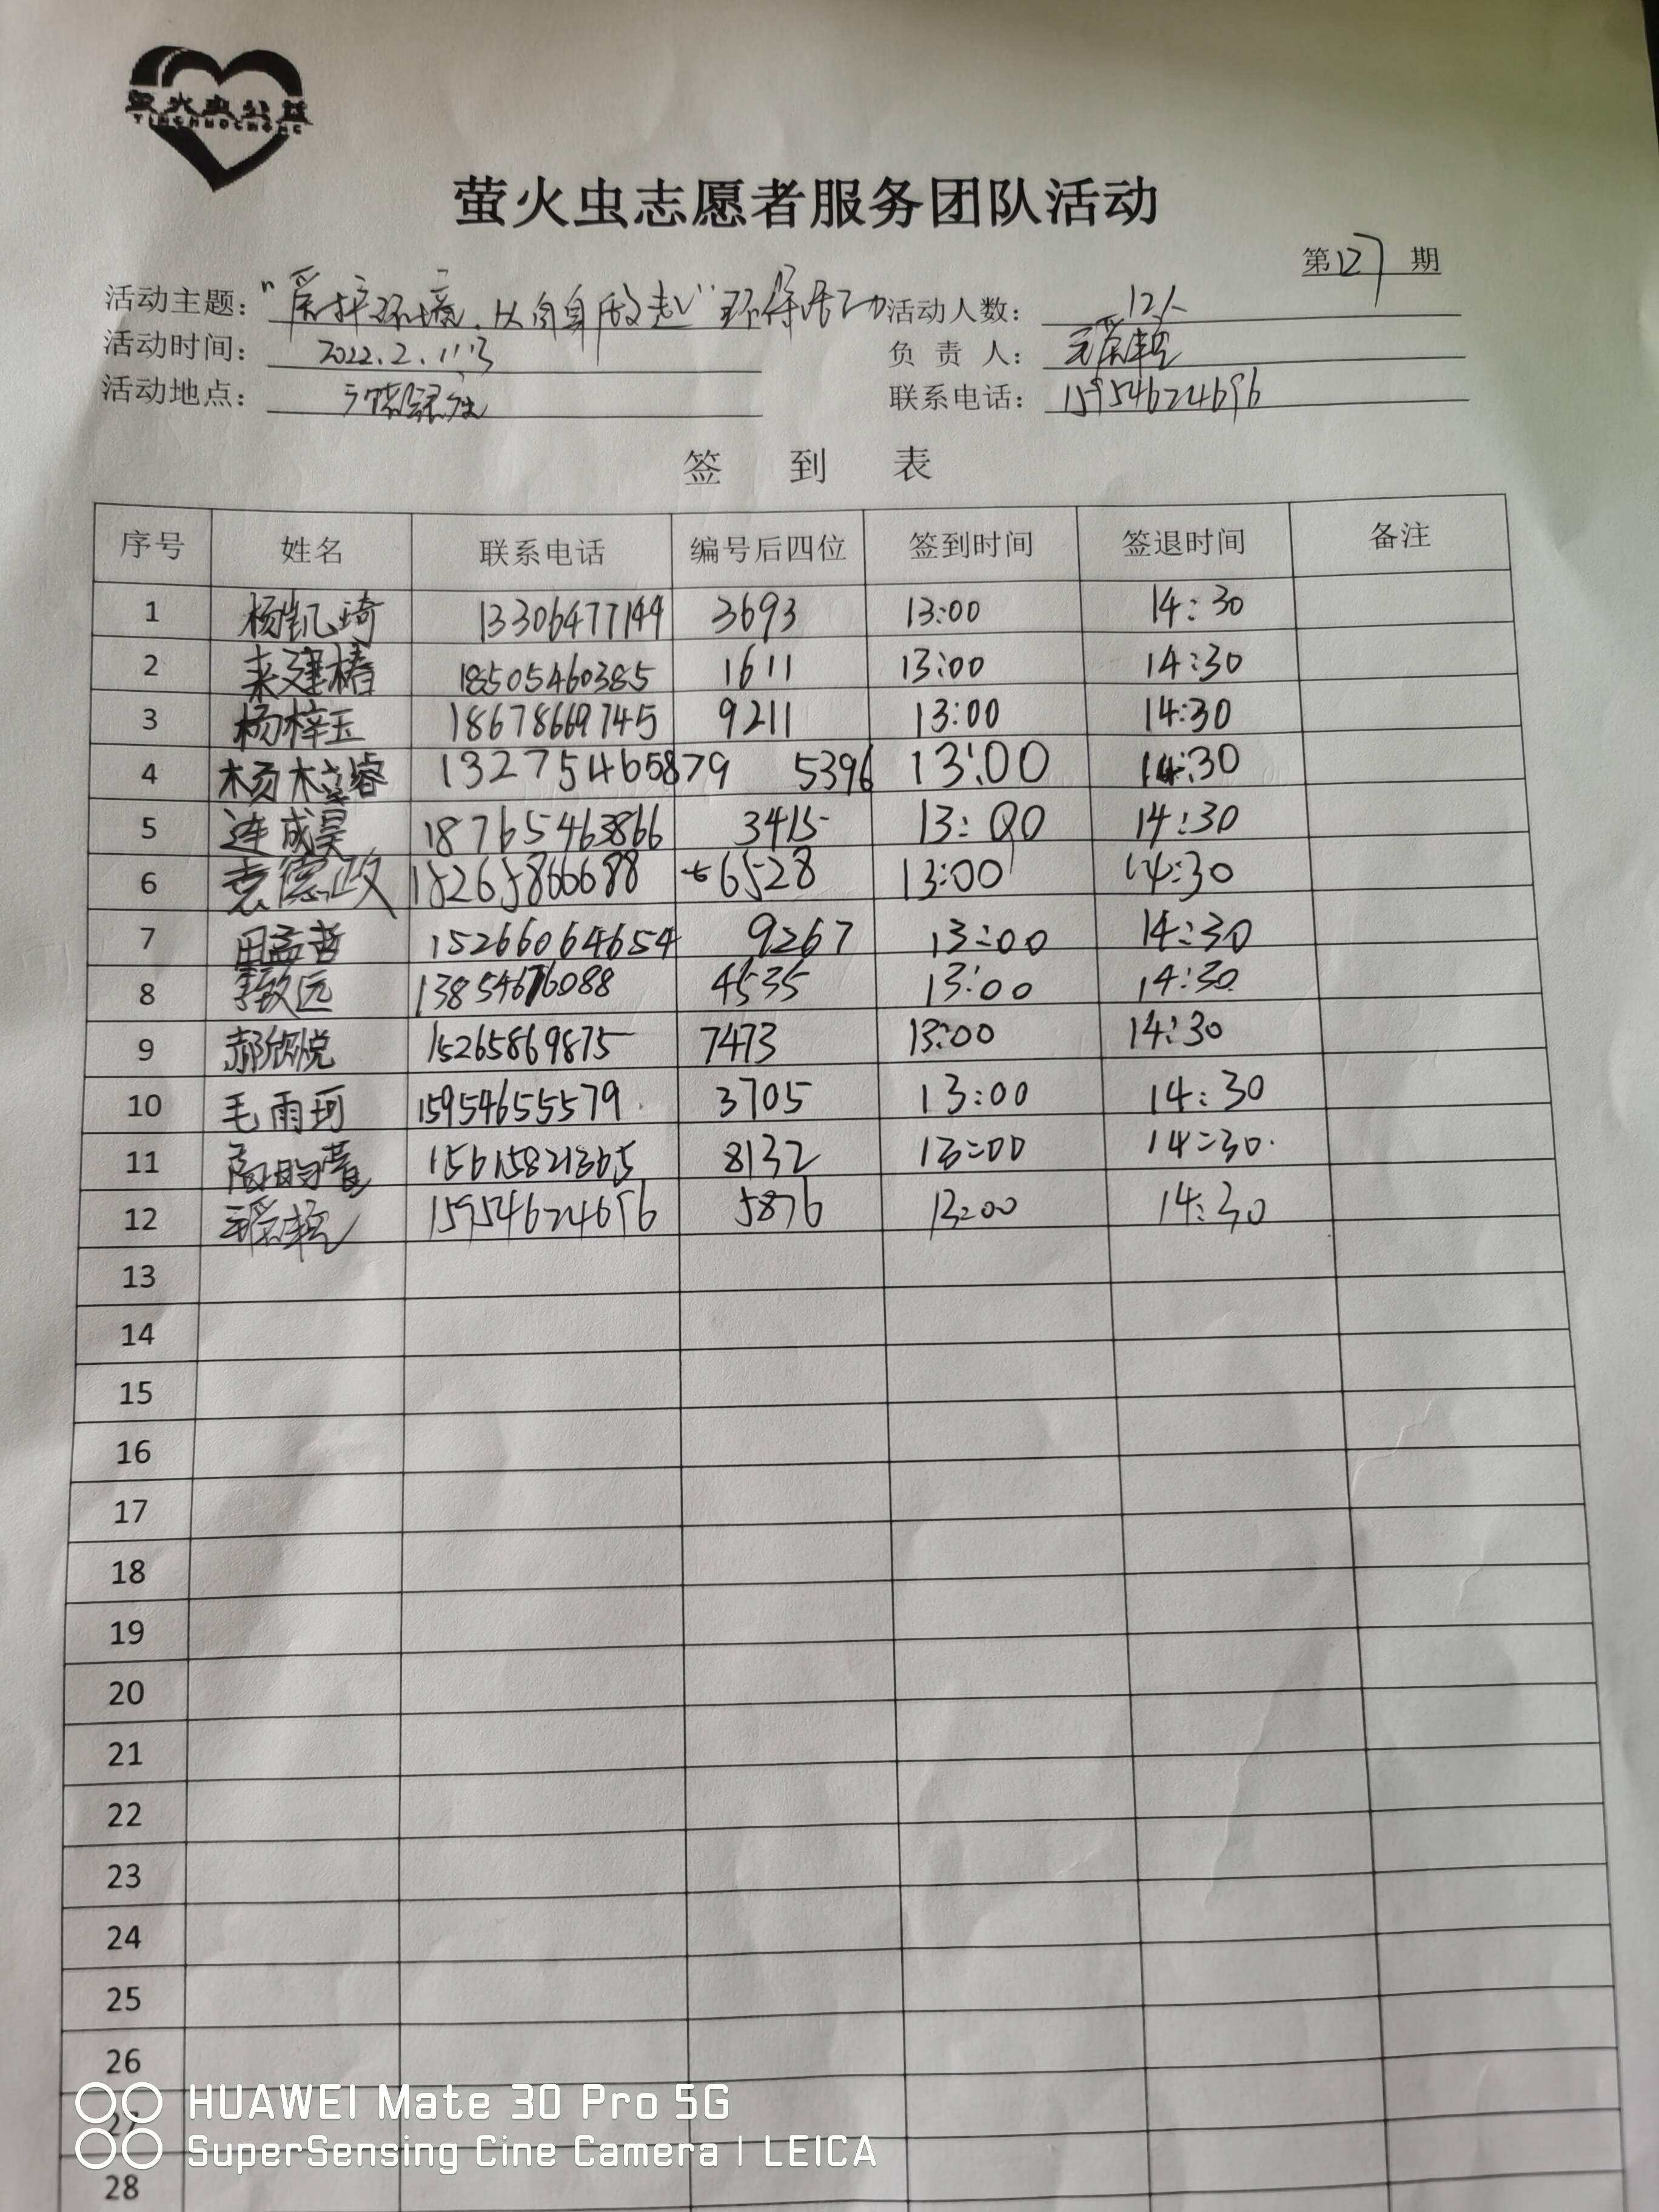 萤火虫公益
YINGHUOCHONG
萤火虫志愿者服务团队活动
第127期
活动主题：“爱护环境，从自身做起”环保活动 活动人数：12人
活动时间：2022.2. 负责人：
活动地点： 联系电话：15954624696
签到表
序号 姓名 联系电话 编号后四位 签到时间 签退时间 备注
1 杨凯琦 13306477149 3693 13:00 14:30
2 来建椿 18505460385 1611 13:00 14:30
3 杨梓玉 18678669745 9211 13:00 14:30
4 杨 13275465879 5396 13:00 14:30
5 连成昊 18765463866 3415 13:00 14:30
6 袁德政 18265866688 6528 13:00 14:30
7 田孟哲 15266064654 9267 13:00 14:30
8 李致远 13854676088 4535 13:00 14:30
9 郝欣悦 15265869875 7473 13:00 14:30
10 毛雨珂 15954655579 3705 13:00 14:30
11 15615821365 8132 13:00 14:30
12 15954624696 5876 13:00 14:30
13
14
15
16
17
18
19
20
21
22
23
24
25
26
27
28
HUAWEI Mate 30 Pro 5G
SuperSensing Cine Camera | LEICA